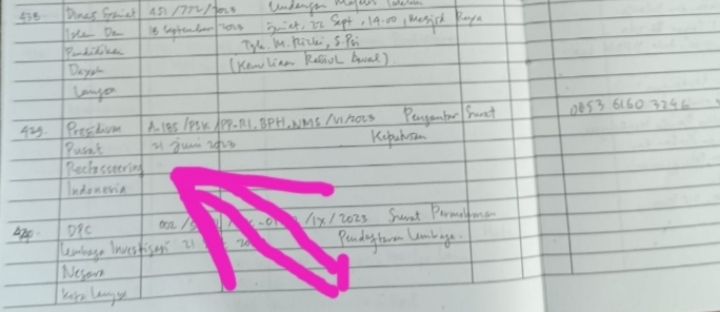 Dinas Syariat 451/772/2023 Undangan
Islam Dan 18 September 2023 Jum'at, 22 Sept, 14.00, Mesjid Raya
Pendidikan Tgk. M. Rizki, S.Psi
Dayah
Langsa
429. Presidium A.185/PSK/PP-RI.BPH.NMS/VI/2023 Pengantar Surat 0853 6160 3246
Pusat 21 Juni 2023 Keputusan
Indonesia
DPC 002 /IX/2023 Surat Permohonan
Lembaga Investigasi 21 Pendaftaran Lembaga.
Negara
Kota Langsa